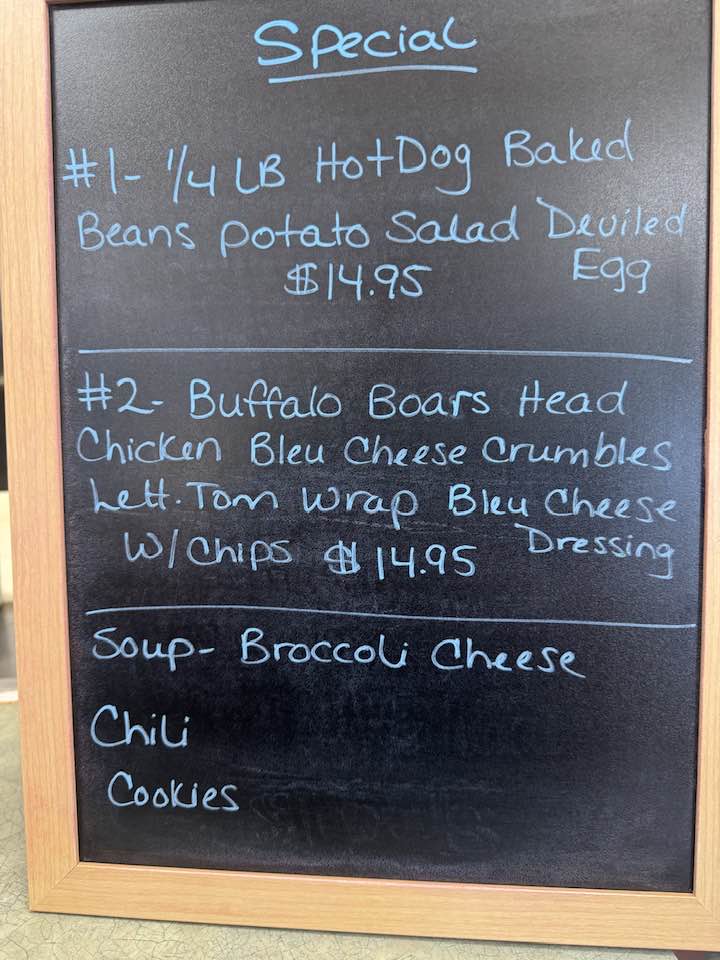 Special
#1- 1/4 LB HotDog Baked
Beans potato Salad Deviled
$14.95 Egg
#2- Buffalo Boars Head
Chicken Bleu Cheese Crumbles
Lett. Tom Wrap Bleu Cheese
W/Chips $14.95 Dressing
Soup- Broccoli Cheese
Chili
Cookies